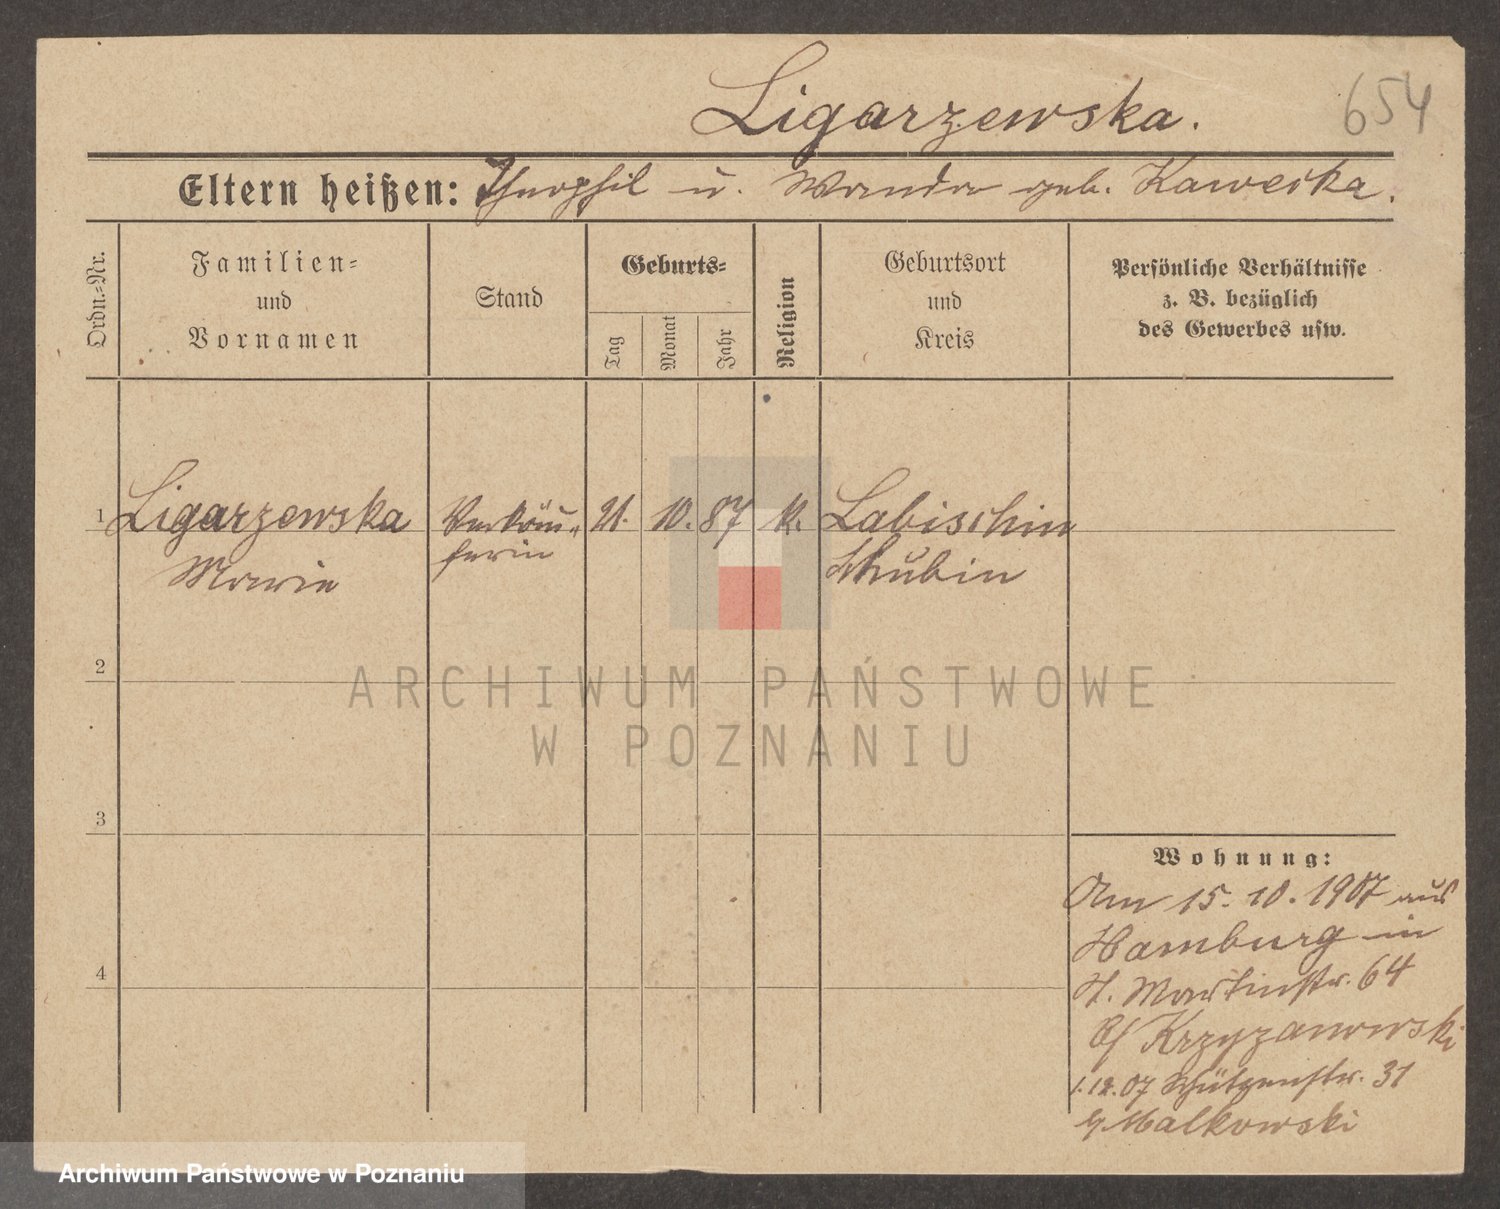 Ligarzewska.
654
Eltern heißen: Theophil u. Wanda geb. Kawecka.
Ordn.-Nr.
Familien-
und
Vornamen
Stand
Geburts-
Tag
Monat
Jahr
Religion
Geburtsort
und
Kreis
Persönliche Verhältnisse
z. B. bezüglich
des Gewerbes usw.
1 Ligarzewska
Marie
Verkäu-
ferin
21. 10. 87 k.
Labischin
Schubin
2
3
4
Wohnung:
Am 15.10.1907 aus
Hamburg in
St. Martinstr. 64
bei Krzyzanowski
1.12.07 Schützenstr. 31
b/ Malkowski
ARCHIWUM PAŃSTWOWE
W POZNANIU
Archiwum Państwowe w Poznaniu